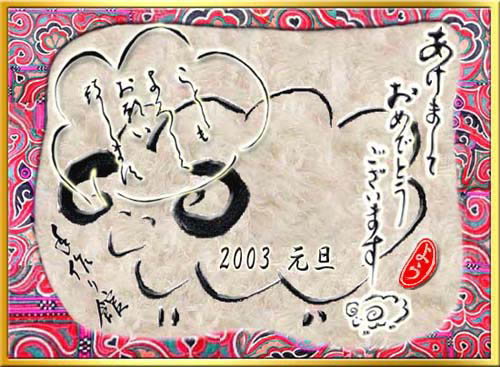 あけまして
おめでとう
ございます
ことしも
よろしく
お願い
致します
2003 元旦
手作り館